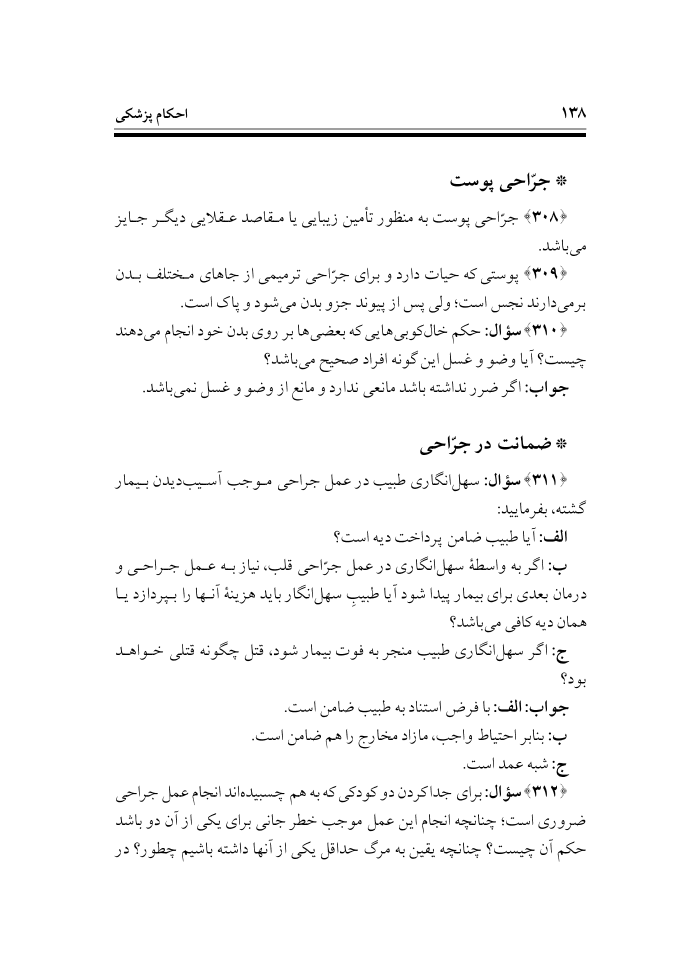 ۱۳۸ احکام پزشکی
❊ جرّاحی پوست
﴿۳۰۸﴾ جرّاحی پوست به منظور تأمین زیبایی یا مـقاصد عـقلایی دیگـر جـایز
می‌باشد.
﴿۳۰۹﴾ پوستی که حیات دارد و برای جرّاحی ترمیمی از جاهای مـختلف بـدن
برمی‌دارند نجس است؛ ولی پس از پیوند جزو بدن می‌شود و پاک است.
﴿۳۱۰﴾ سؤال: حکم خال‌کوبی‌هایی که بعضی‌ها بر روی بدن خود انجام می‌دهند
چیست؟ آیا وضو و غسل این گونه افراد صحیح می‌باشد؟
جواب: اگر ضرر نداشته باشد مانعی ندارد و مانع از وضو و غسل نمی‌باشد.
❊ ضمانت در جرّاحی
﴿۳۱۱﴾ سؤال: سهل‌انگاری طبیب در عمل جراحی مـوجب آسـیب‌دیدن بـیمار
گشته، بفرمایید:
الف: آیا طبیب ضامن پرداخت دیه است؟
ب: اگر به واسطهٔ سهل‌انگاری در عمل جرّاحی قلب، نیاز بـه عـمل جـراحـی و
درمان بعدی برای بیمار پیدا شود آیا طبیبِ سهل‌انگار باید هزینهٔ آنـها را بـپردازد یـا
همان دیه کافی می‌باشد؟
ج: اگر سهل‌انگاری طبیب منجر به فوت بیمار شود، قتل چگونه قتلی خـواهـد
بود؟
جواب: الف: با فرض استناد به طبیب ضامن است.
ب: بنابر احتیاط واجب، مازاد مخارج را هم ضامن است.
ج: شبه عمد است.
﴿۳۱۲﴾ سؤال: برای جداکردن دو کودکی که به هم چسبیده‌اند انجام عمل جراحی
ضروری است؛ چنانچه انجام این عمل موجب خطر جانی برای یکی از آن دو باشد
حکم آن چیست؟ چنانچه یقین به مرگ حداقل یکی از آنها داشته باشیم چطور؟ در